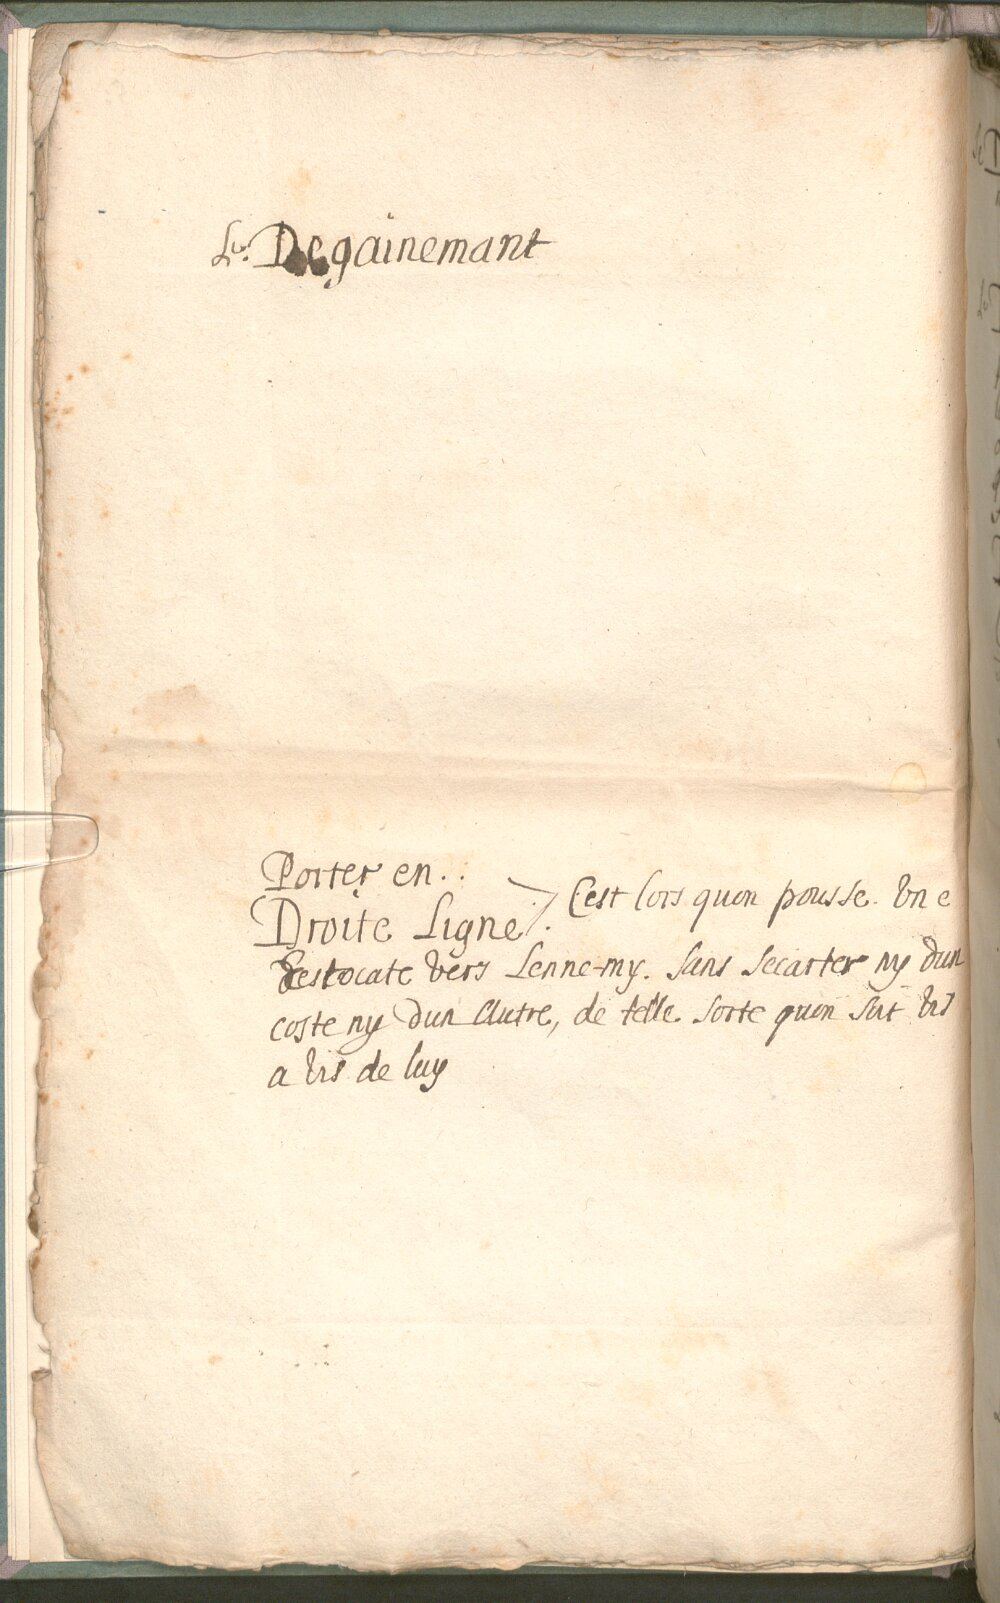 Le. Degainemant
Porter en..
Droite Ligne. Cest lors quon pousse. Vne
estocate vers Lenne-my. Sans Secarter ny dun
coste ny dun Autre, de telle Sorte quon Soit vis
a vis de luy